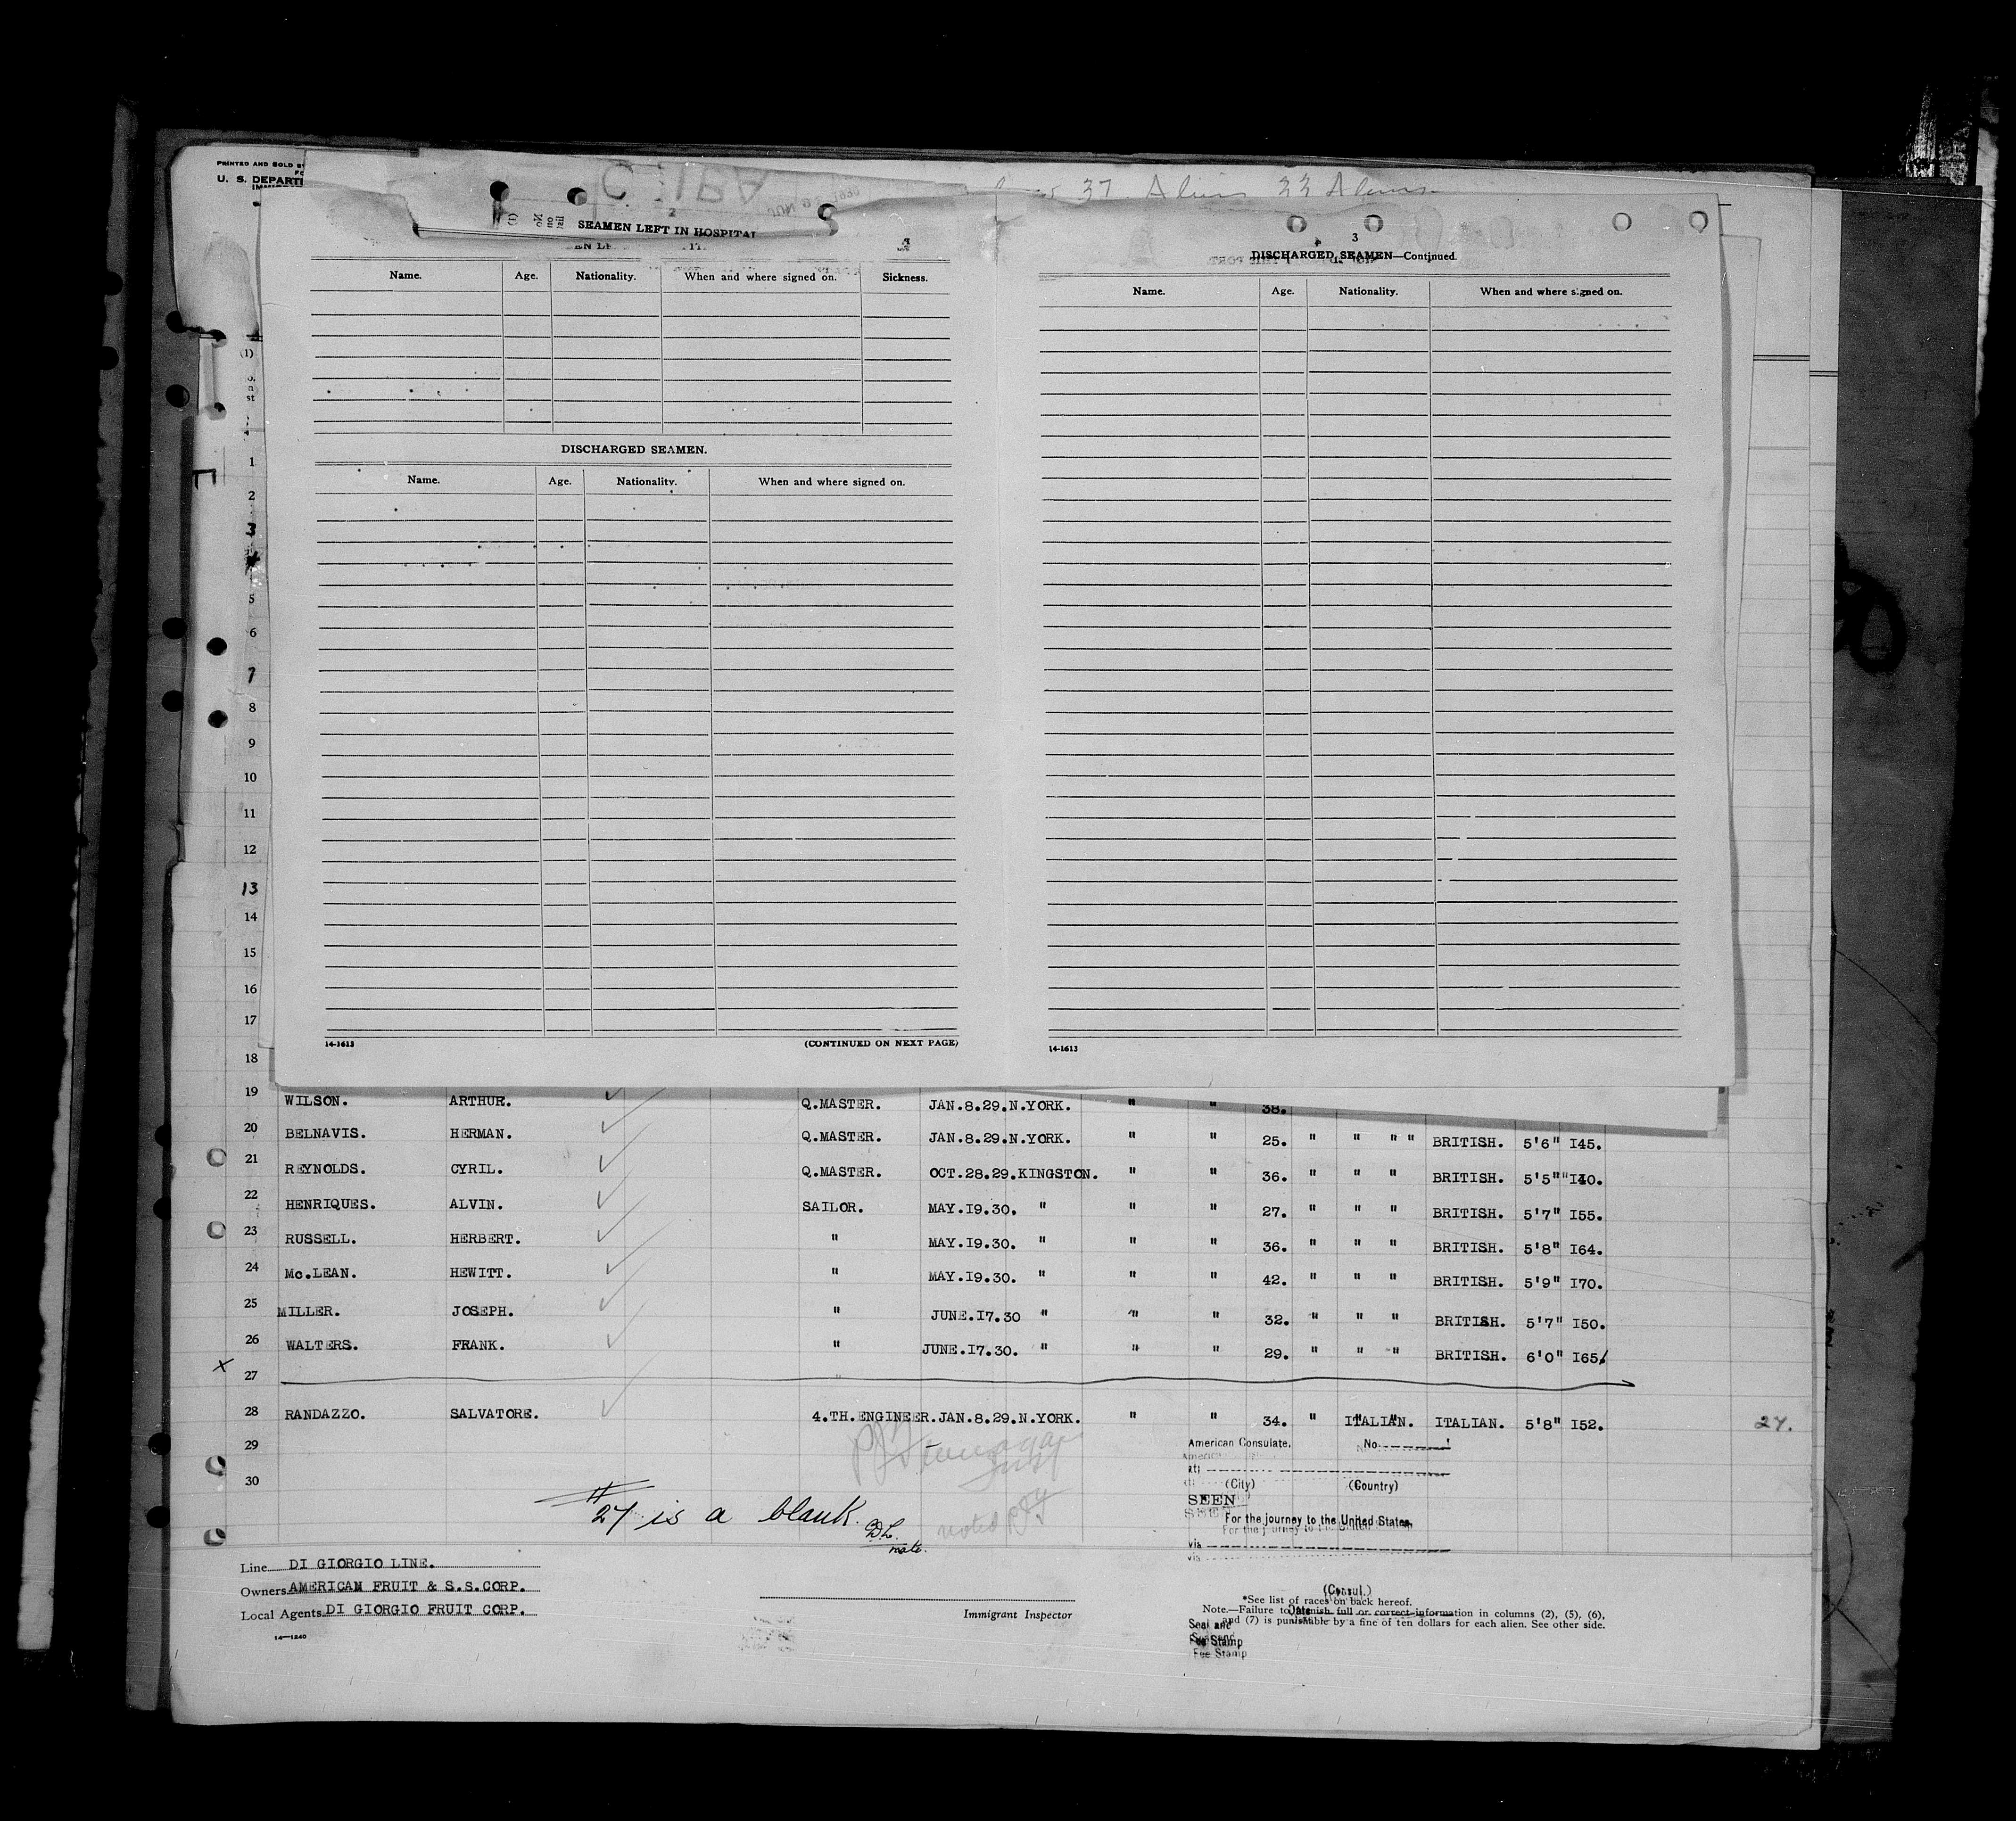 PRINTED AND SOLD
U. S. DEPART
37 Aliens 33 Aliens
2
SEAMEN LEFT IN HOSPITAL
Name. Age. Nationality. When and where signed on. Sickness.
DISCHARGED SEAMEN.
Name. Age. Nationality. When and where signed on.
14-1613 (CONTINUED ON NEXT PAGE)
3
DISCHARGED SEAMEN—Continued.
Name. Age. Nationality. When and where signed on.
14-1613
(1)
1
2
3
4
5
6
7
8
9
10
11
12
13
14
15
16
17
18
19 WILSON. ARTHUR. ✓ Q.MASTER. JAN.8.29.N.YORK. " " 38.
20 BELNAVIS. HERMAN. ✓ Q.MASTER. JAN.8.29.N.YORK. " " 25. " " " " BRITISH. 5'6" I45.
21 REYNOLDS. CYRIL. ✓ Q.MASTER. OCT.28.29.KINGSTON. " " 36. " " " BRITISH. 5'5""I40.
22 HENRIQUES. ALVIN. ✓ SAILOR. MAY.I9.30. " " " 27. " " " BRITISH. 5'7" I55.
23 RUSSELL. HERBERT. ✓ " MAY.I9.30. " " " 36. " " " BRITISH. 5'8" I64.
24 Mc.LEAN. HEWITT. ✓ " MAY.I9.30. " " " 42. " " " BRITISH. 5'9" I70.
25 MILLER. JOSEPH. ✓ " JUNE.I7.30 " " " 32. " " " BRITISH. 5'7" I50.
26 WALTERS. FRANK. ✓ " JUNE.I7.30. " " " 29. " " " BRITISH. 6'0" I65.
x 27
28 RANDAZZO. SALVATORE. ✓ 4.TH.ENGINEER.JAN.8.29.N.YORK. " " 34. " ITALIAN. ITALIAN. 5'8" I52. 27.
29
30
# 27 is a blank. D.L. mate.
noted
American Consulate. No
at
(City) (Country)
SEEN
For the journey to the United States.
via
(Consul.)
Date
Seal and
Fee Stamp
Line DI GIORGIO LINE.
Owners AMERICAM FRUIT & S.S.CORP.
Local Agents DI GIORGIO FRUIT CORP.
14—1240
Immigrant Inspector
*See list of races on back hereof.
Note.—Failure to furnish full or correct information in columns (2), (5), (6),
and (7) is punishable by a fine of ten dollars for each alien. See other side.